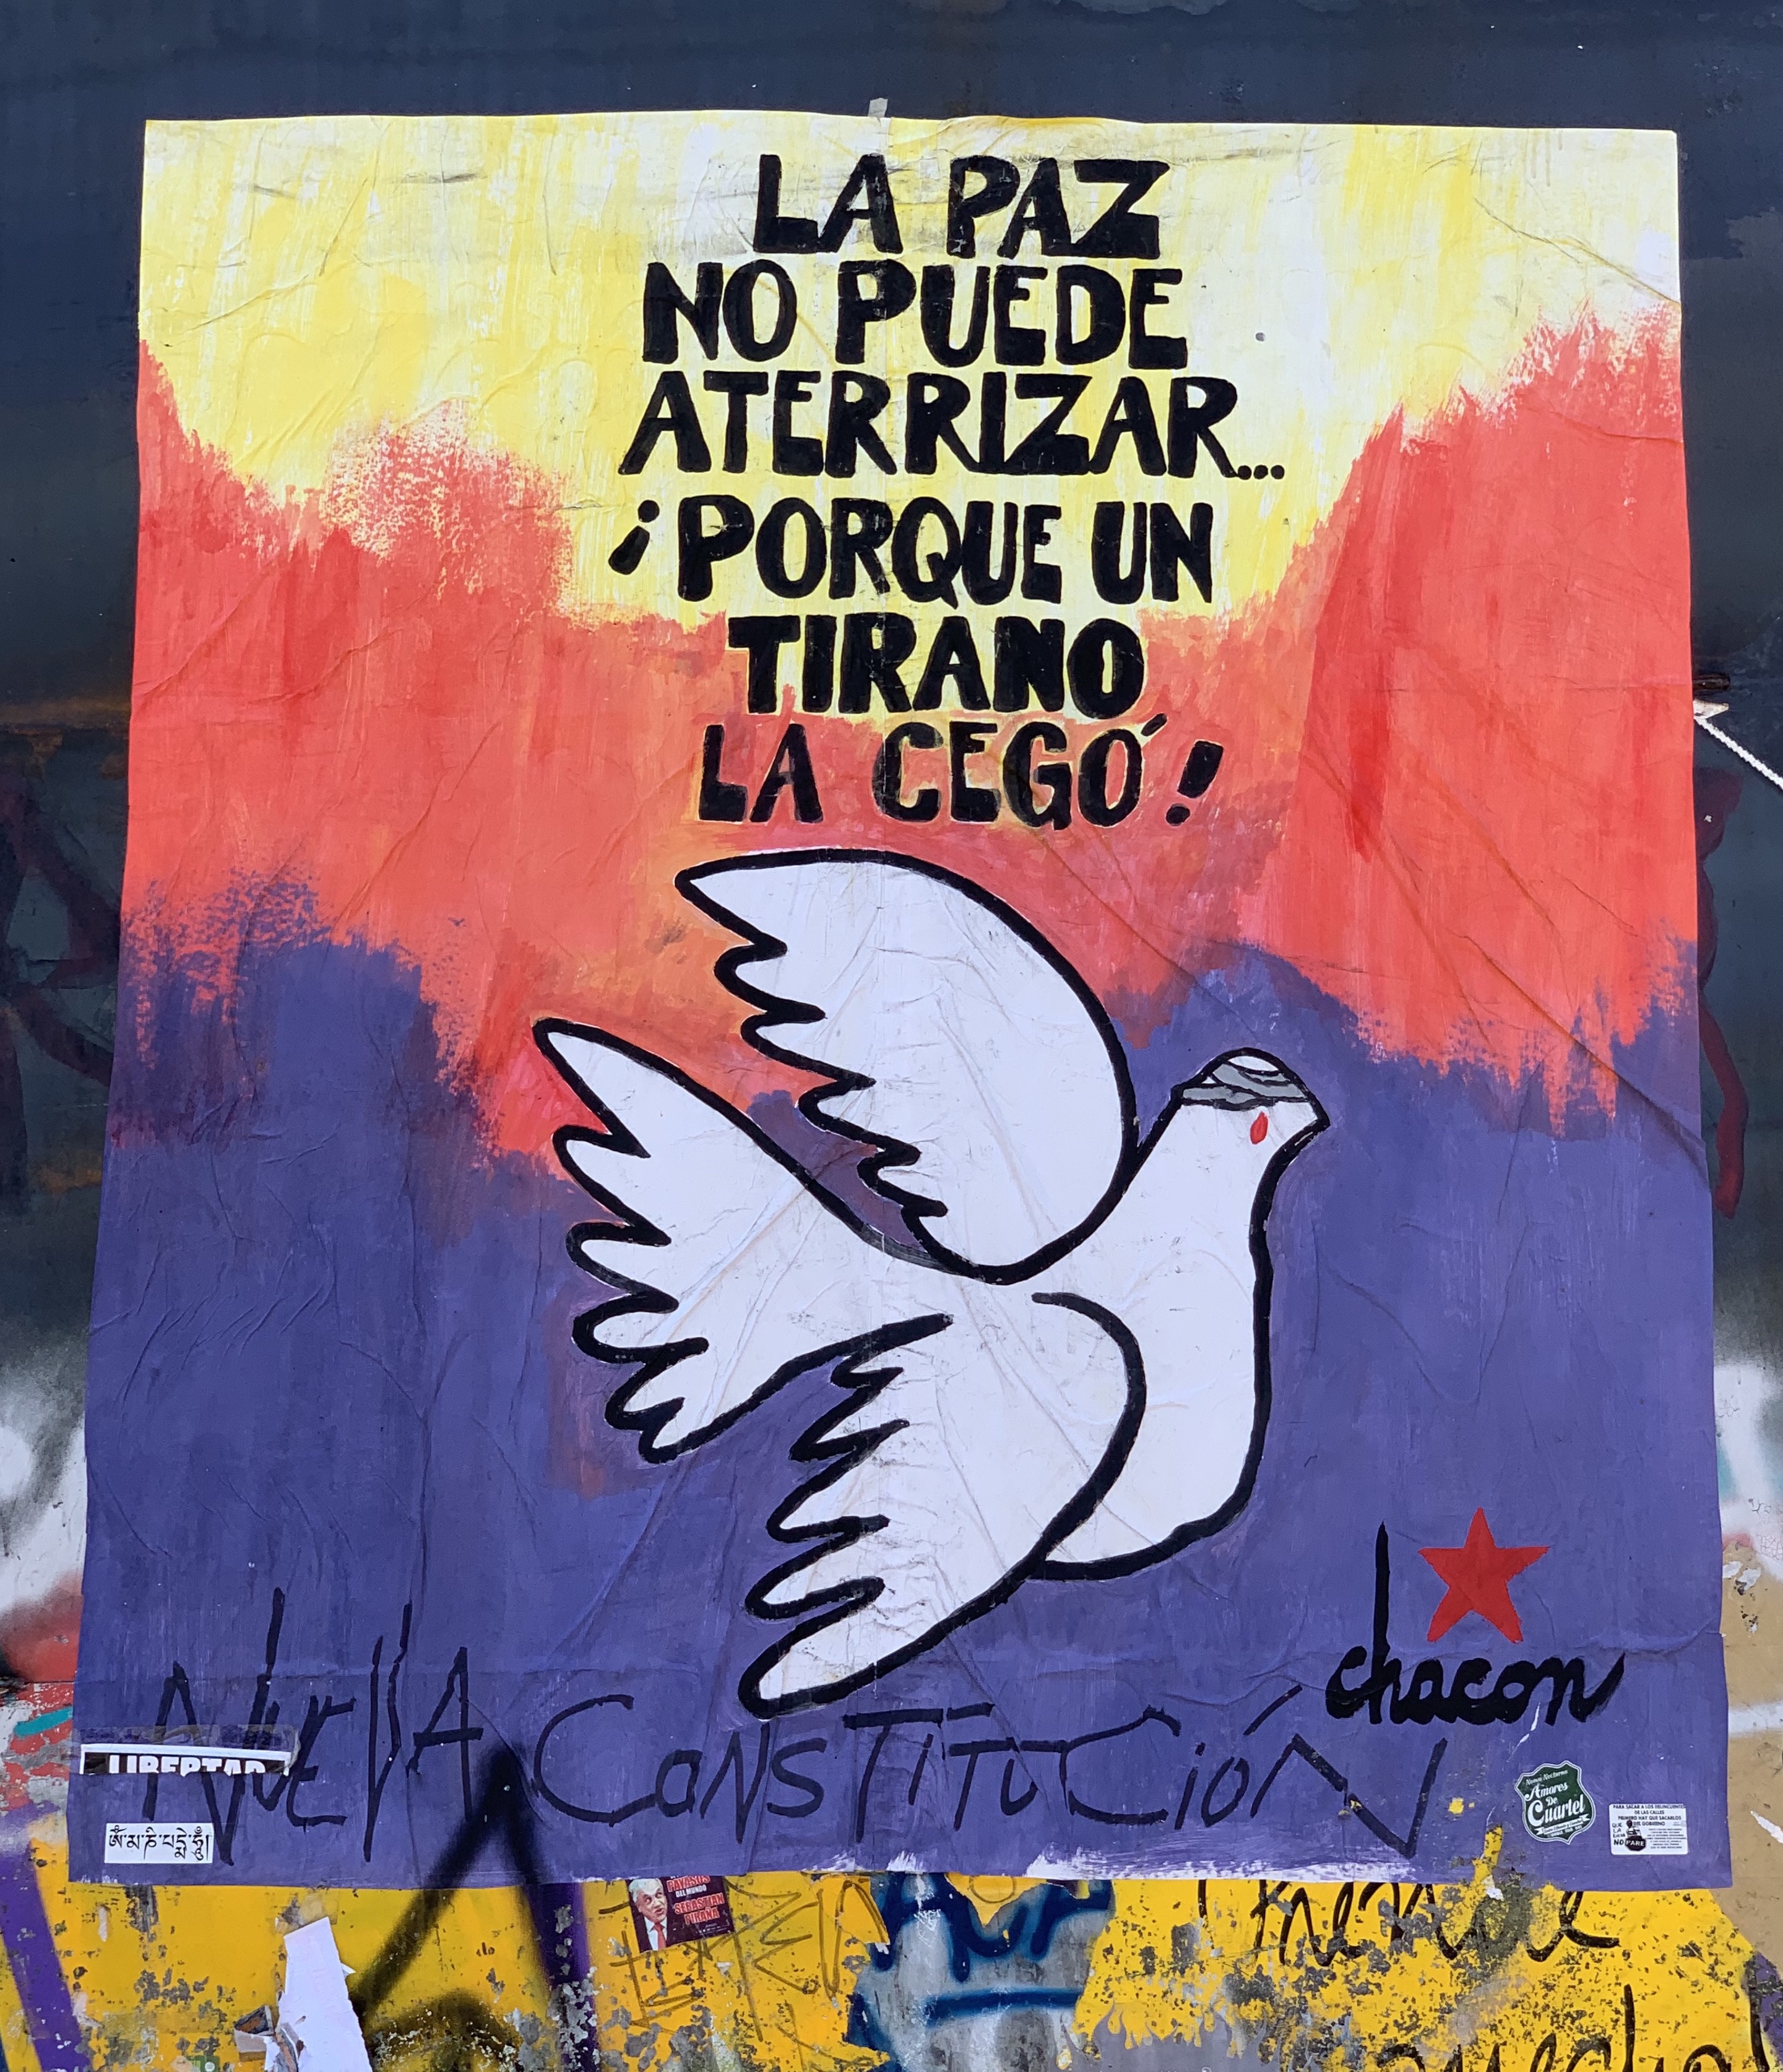 LA PAZ
NO PUEDE
ATERRIZAR...
¡PORQUE UN
TIRANO
LA CEGÓ!
chacon
NUEVA CONSTITUCIÓN
LIBERTAD
ༀ་མ་ཎི་པདྨེ་ཧཱུྃ།
Amores
De
Cuartel
PARA SACAR A LOS DELINCUENTES
DE LAS CALLES
PRIMERO HAY QUE SACARLOS
DEL GOBIERNO
NO PARE
PAYASOS
DEL MUNDO
SEBASTIAN
PIRAÑA